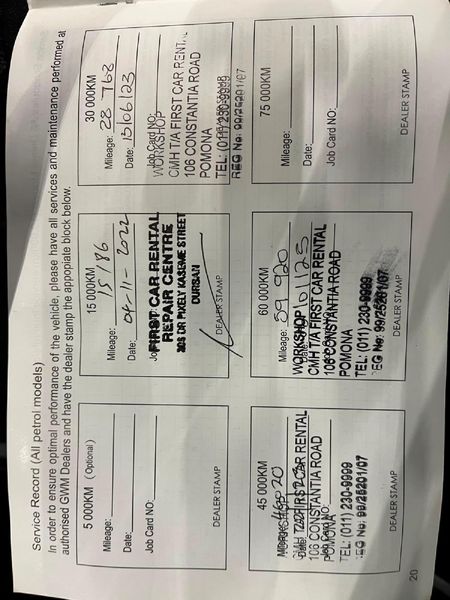 Service Record (All petrol models)
In order to ensure optimal performance of the vehicle, please have all services and maintenance performed at
authorised GWM Dealers and have the dealer stamp the appopiate block below.
5 000KM (Optional)
Mileage:
Date:
Job Card NO:
DEALER STAMP
15 000KM
Mileage: 15186
Date: 04-11-2022
FIRST CAR RENTAL
REPAIR CENTRE
DURBAN
DEALER STAMP
30 000KM
Mileage: 28 768
Date: 13/06/23
Job Card NO:
WORKSHOP
CMH T/A FIRST CAR RENTAL
106 CONSTANTIA ROAD
POMONA
TEL: (011) 230-9999
REG No: 99/25201/07
45 000KM
CMH T/A FIRST CAR RENTAL
106 CONSTANTIA ROAD
POMONA
TEL: (011) 230-9999
REG No: 99/25201/07
DEALER STAMP
60 000KM
Mileage: 59 920
WORKSHOP
CMH T/A FIRST CAR RENTAL
106 CONSTANTIA ROAD
POMONA
TEL: (011) 230-9999
REG No: 99/25201/07
DEALER STAMP
75 000KM
Mileage:
Date:
Job Card NO:
DEALER STAMP
20